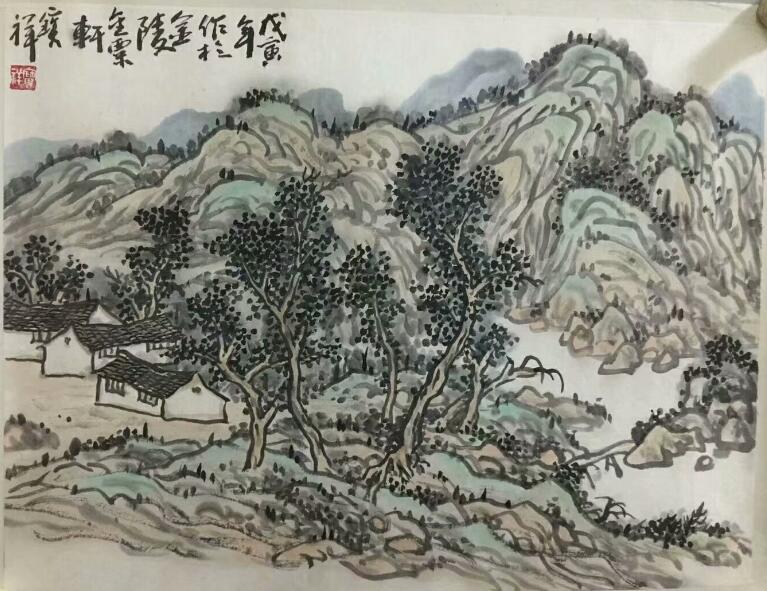 戊寅
年
作於
金
陵
金粟
軒
寶
祥